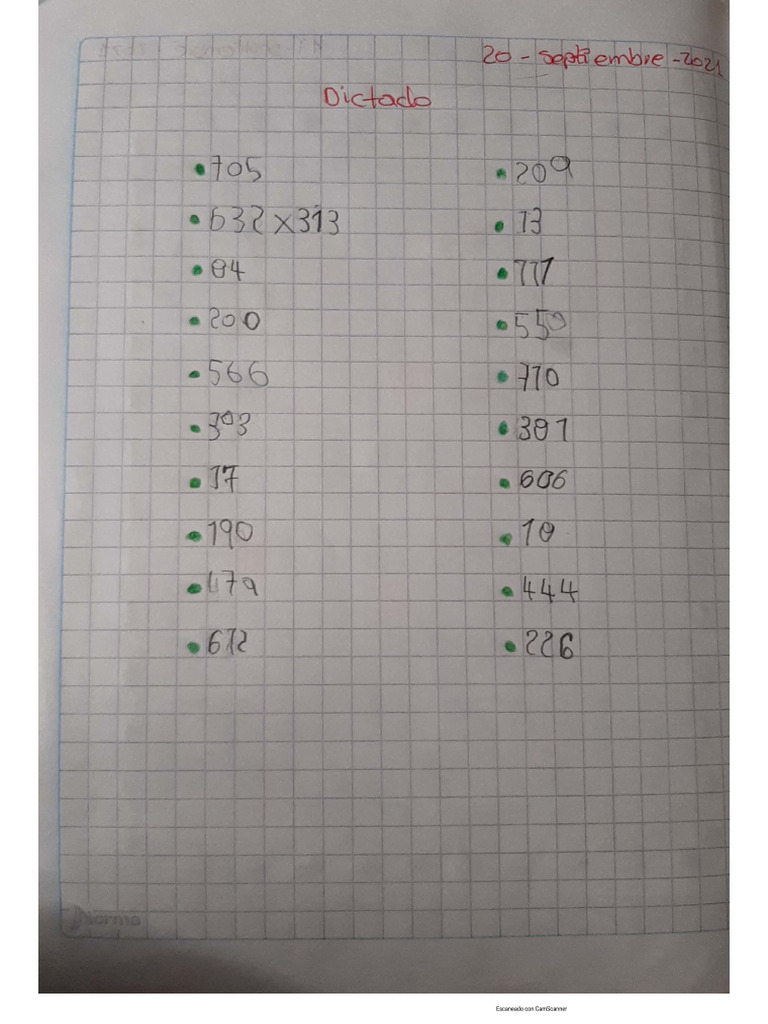 20 - septiembre - 2021
Dictado
• 705
• 632 x 313
• 84
• 200
• 566
• 303
• 17
• 190
• 479
• 672
• 209
• 13
• 777
• 550
• 770
• 381
• 606
• 10
• 444
• 226
norma
Escaneado con CamScanner